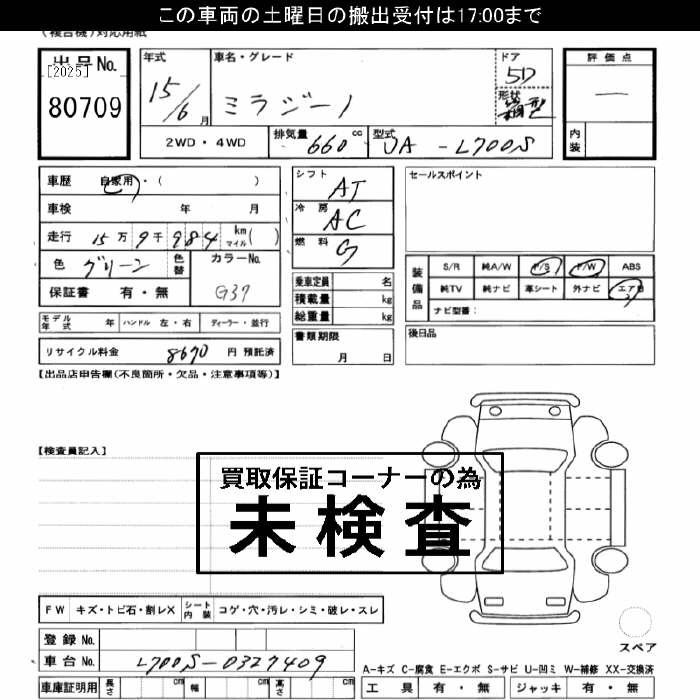 この車両の土曜日の搬出受付は17:00まで
(複合機)対応用紙
出品No.
[2025]
80709
年式
15/6 月
車名・グレード
ミラジーノ
ドア
5D
形状
箱型
評価点
―
内装
2WD・4WD
排気量
660 cc
型式
UA - L700S
車歴 自家用・( )
車検 年 月
走行 15万9千984 km マイル( )
色 グリーン 色替
カラーNo.
G37
保証書 有・無
シフト
AT
冷房
AC
燃料
G
乗車定員 名
積載量 kg
総重量 kg
セールスポイント
装備品
S/R 純A/W P/S P/W ABS
純TV 純ナビ 革シート 外ナビ エアB
ナビ型番:
モデル年式 年 ハンドル 左・右 ディーラー・並行
書類期限
月 日
後日品
リサイクル料金 8670 円 預託済
【出品店申告欄(不良箇所・欠品・注意事項等)】
【検査員記入】
買取保証コーナーの為
未検査
FW キズ・トビ石・割レX シート内装 コゲ・穴・汚レ・シミ・破レ・スレ
登録No.
車台No. L700S-0327409
スペア
A-キズ C-腐食 E-エクボ S-サビ U-凹ミ W-補修 XX-交換済
車庫証明用 長さ cm 幅 cm 高さ cm
工具 有・無 ジャッキ 有・無